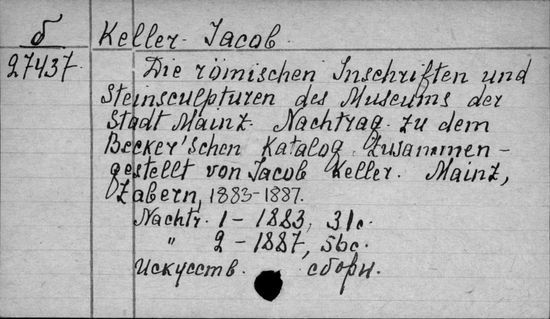 б Keller Jacob.
27437. Die römischen Inschriften und
Steinsculpturen des Museums der
Stadt Mainz. Nachtrag zu dem
Becker'schen Katalog. Zusammen-
gestellt von Jacob Keller. Mainz,
Zabern, 1883-1887.
Nachtr. 1 - 1883, 31c.
" 2 - 1887, 56c.
Искусств. сборн.